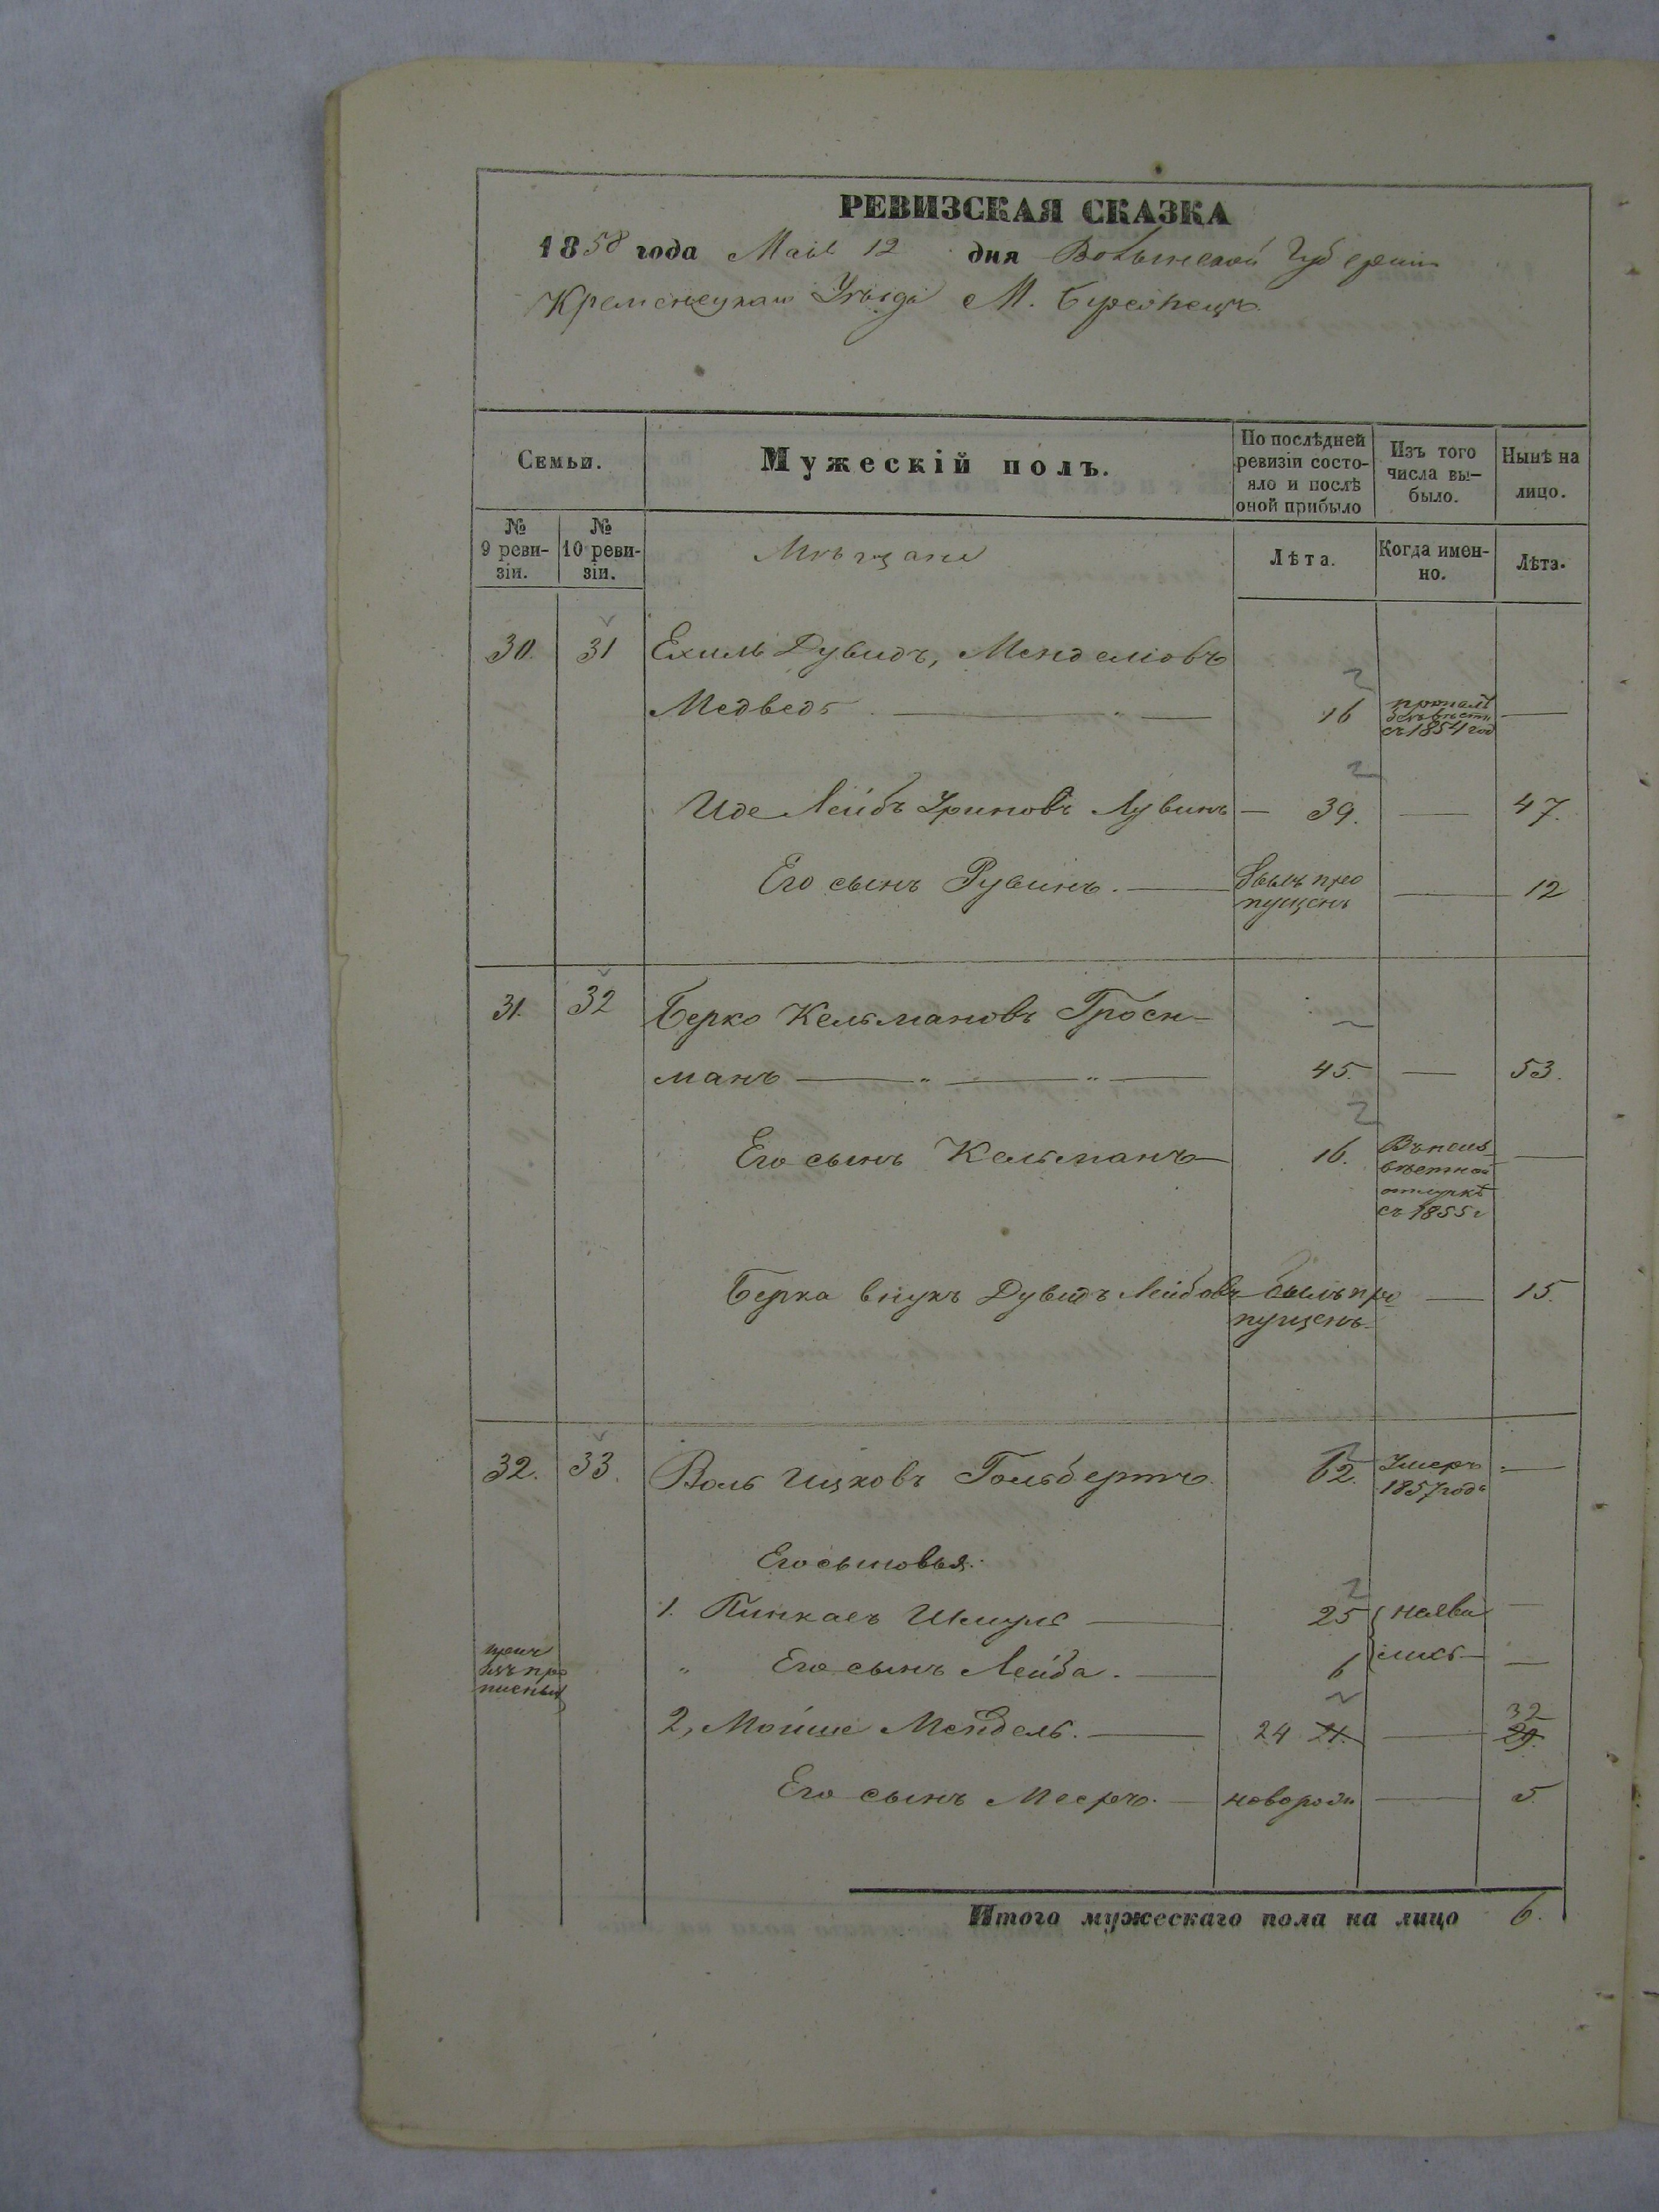 РЕВИЗСКАЯ СКАЗКА
1858 года Маія 12 дня Волынской Губерніи
Кременецкаго Уѣзда М. Бережецъ
Семьи.
Мужескій полъ.
По послѣдней ревизіи состо-яло и послѣ оной прибыло
Изъ того числа вы-было.
Нынѣ на лицо.
№ 9 реви-зіи.
№ 10 реви-зіи.
Мѣщане
Лѣта.
Когда имен-но.
Лѣта.
30. 31 Ехиль Дувидъ, Менделіовъ
Медведь 16 пропалъ безъ вѣсти съ 1854 год —
Иде Лейбъ Уриновъ Лувинъ — 39. — 47.
Его сынъ Рувинъ. — былъ про пущенъ — 12
31. 32 Берко Кельмановъ Гросн-
манъ — 45. — 53.
Его сынъ Кельманъ — 16. Въ неиз вѣстной отлучкѣ съ 1855 г —
Берка внукъ Дувидъ Лейбовъ былъ про пущенъ — 15.
32. 33. Воль Ицковъ Гольбертъ 62. Умеръ 1857 года —
Его сыновья:
1. Пинкасъ Шмуль — 25 { неяви —
" Его сынъ Лейба. — 6 лись —
2, Мойше Мендель. — 24 21. — 32 29.
Его сынъ Мееръ. — новорожд — 5.
Итого мужескаго пола на лицо 6.